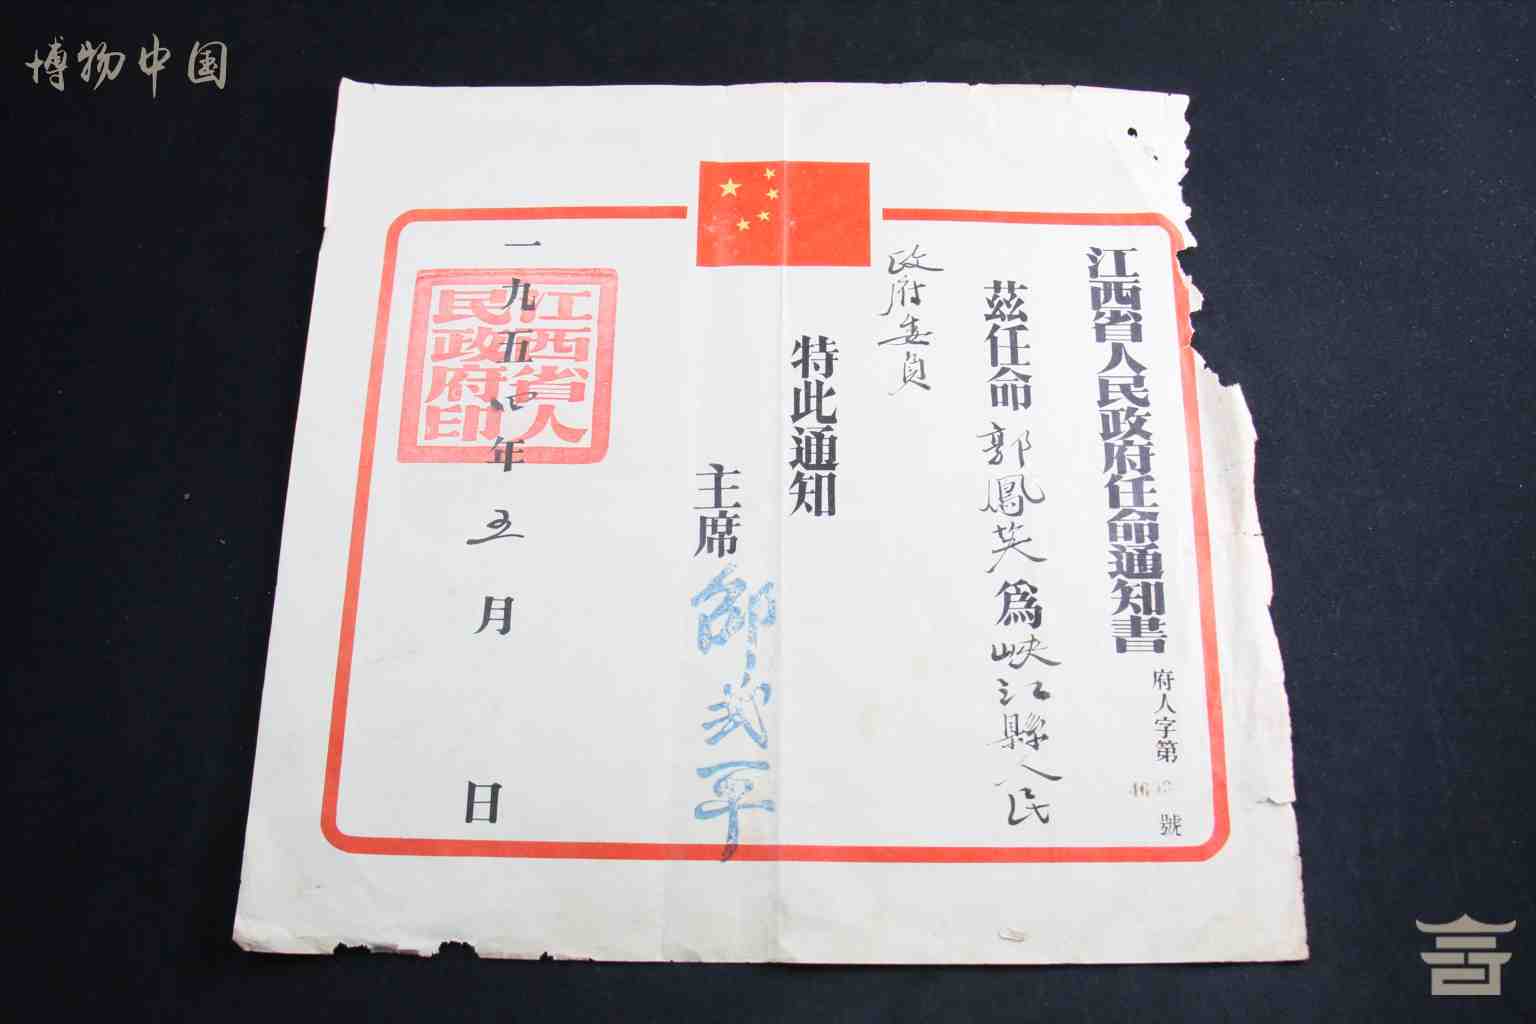 博物中国
江西省人民政府任命通知書
府人字第
號
茲任命郭鳳英為峽江縣人民
政府委員
特此通知
主席邵式平
一九五四年五月 日
江西省人
民政府印